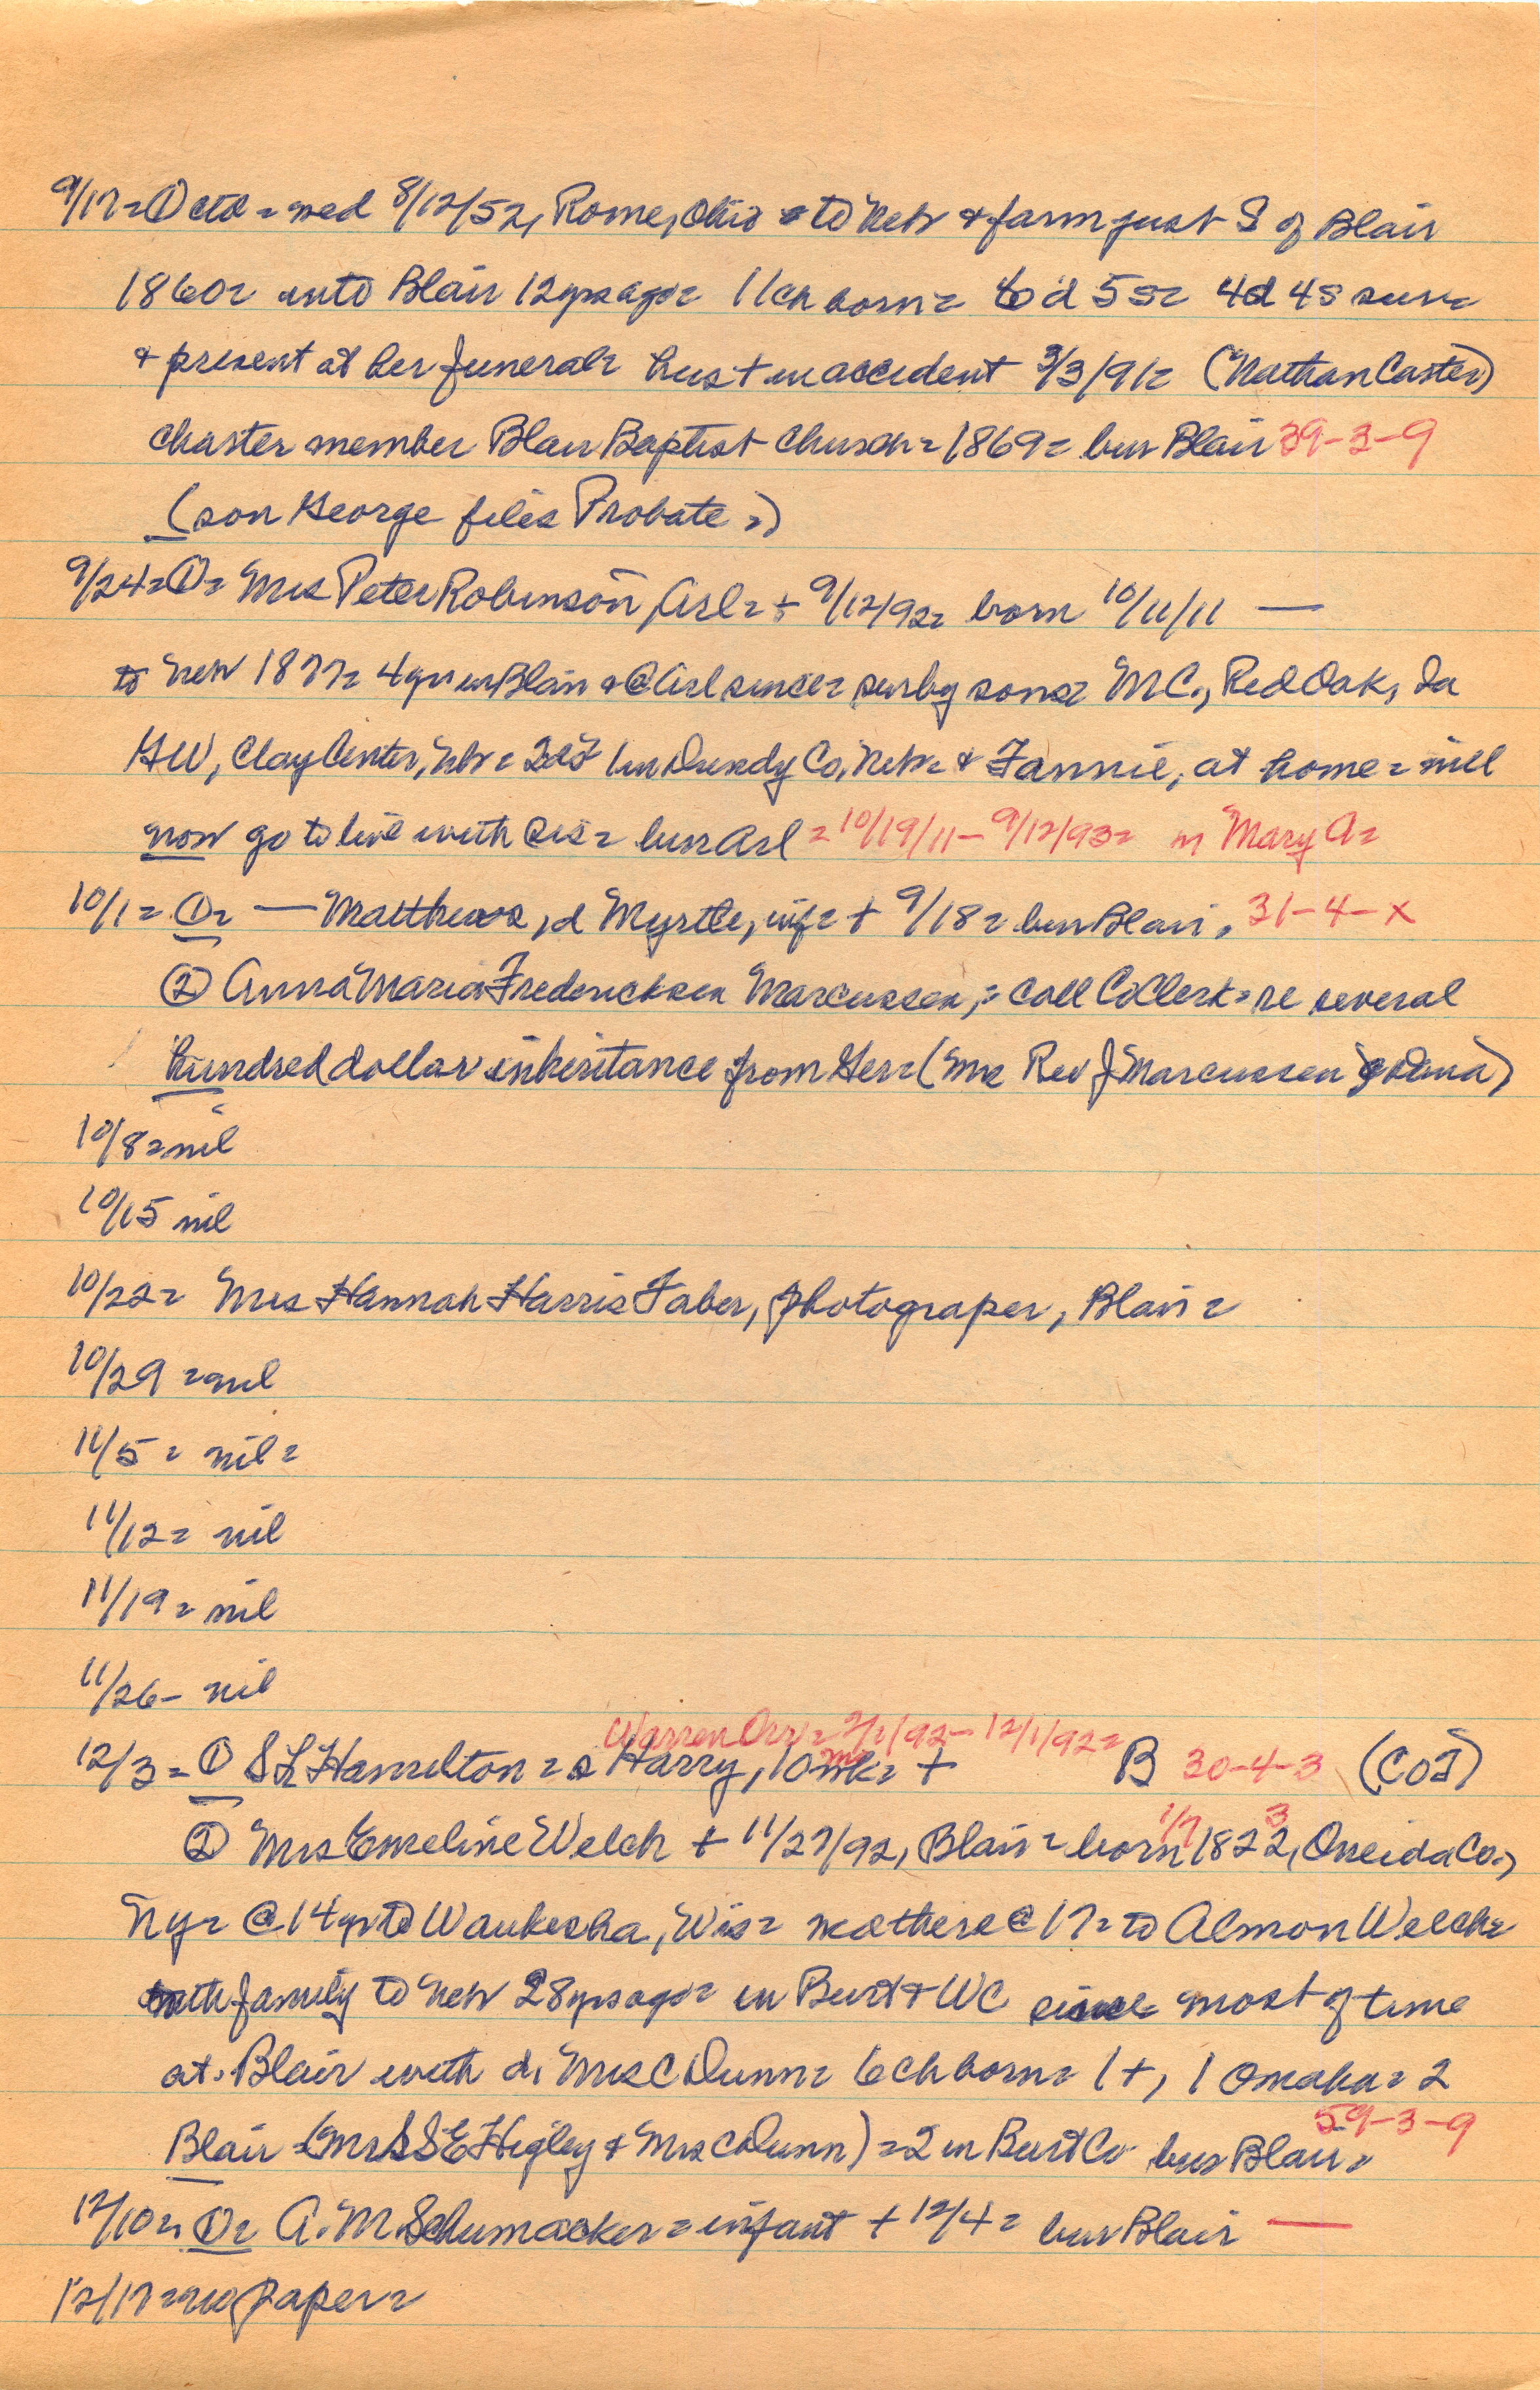 9/17= ① ctd = med 8/12/52, Rome, Ohio = to Neb & farm just S of Blair
1860= into Blair 12 yrs ago= 11 ch born= 6 d 5 s= 4d 4s surv=
& present at her funeral= hus + in accident 3/3/91= (Nathan Caster)
charter member Blair Baptist Church = 1869= bur Blair 39-3-9
(son George files Probate =)
9/24= ①= Mrs Peter Robinson, Arl= + 9/12/92= born 10/11/11 —
to Neb 1877= 4 yr in Blair & @ Arl since= surv by sons= MC., Red Oak, Ia
GW, Clay Center, Neb = in Dundy Co, Neb= & Fannie, at home = will
now go to live with sis= bur Arl = 10/19/11 - 9/12/93= m Mary A=
10/1= ①= — Matthews, d Myrtle, inf= + 9/18= bur Blair, 31-4-x
② Anna Maria Fredericksen Marcussen, = call Co Clerk = re several
hundred dollar inheritance from Ger= (Mrs Rev J Marcussen )
10/8= nil
10/15 nil
10/22= Mrs Hannah Harris Faber, photograper, Blair=
10/29 = nil
11/5 = nil =
11/12= nil
11/19= nil
11/26- nil
Warren Orr= 2/1/92- 12/1/92=
12/3= ① S L Hamilton = s Harry, 10 mo + B 30-4-3 (COJ)
1/7 3
② Mrs Emeline Welch + 11/27/92, Blair = born 1822, Oneida Co.,
NY= @ 14 yr to Waukesha, Wis= med there @ 17= to Almon Welch=
with family to Neb 28 yrs ago= in Burt & WC since most of time
at Blair with d, Mrs C Dunn= 6 ch born= 1+, 1 Omaha= 2
59-3-9
Blair (Mrs S E Higley & Mrs C Dunn) = 2 in Burt Co bur Blair=
12/10= ①= A. M. Schumacker = infant + 12/4= bur Blair —
12/17= no paper=